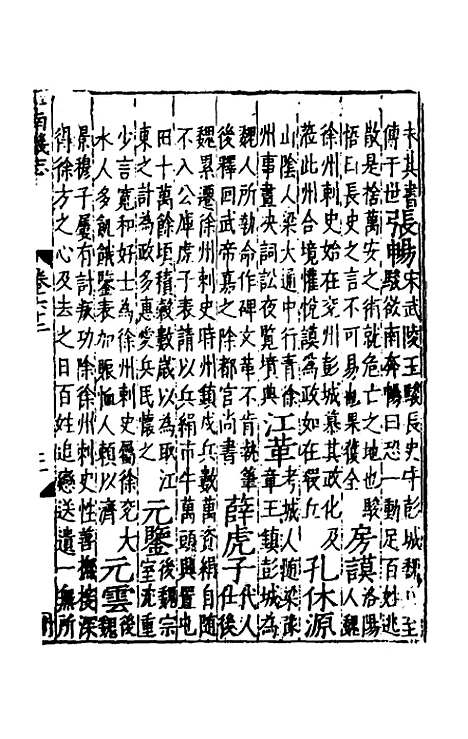 夫其書張暢宋武陵王駿長史守彭城魏人至
傳于世　駿欲南奔暢曰恐一動足百姓逃
散是捨萬安之術就危亡之地也駿　房謨洛陽
悟曰長史之言不可易也果獲全　人魏
徐州刺史始在兗州彭城慕其政化及孔休源
蒞此州合境懽悅謨為政如在瑕丘
山陰人梁大通中行青徐　江革考城人隨梁豫
州事晝決詞訟夜覽墳典　章王鎮彭城為
魏人所執命作碑文革不肯執筆　薛虎子代人
後釋回武帝嘉之除都官尚書　仕後
魏累遷徐州刺史時州鎮戍兵數萬資絹自隨
不入公庫虎子表請以兵絹市牛萬頭興置屯
田十萬餘頃積穀數歲以為取江　元鑒後魏宗
東之計為政多惠愛兵民懷之　室沈重
少言寬和好士為徐州刺史屬徐兗大　元雲後魏
水人多飢饉鑒表加賑恤人賴以濟
景穆子屢有討叛功除徐州刺史性善撫接深
得徐方之心及去之日百姓追戀送遺一無所
南畿志
卷六十二
二